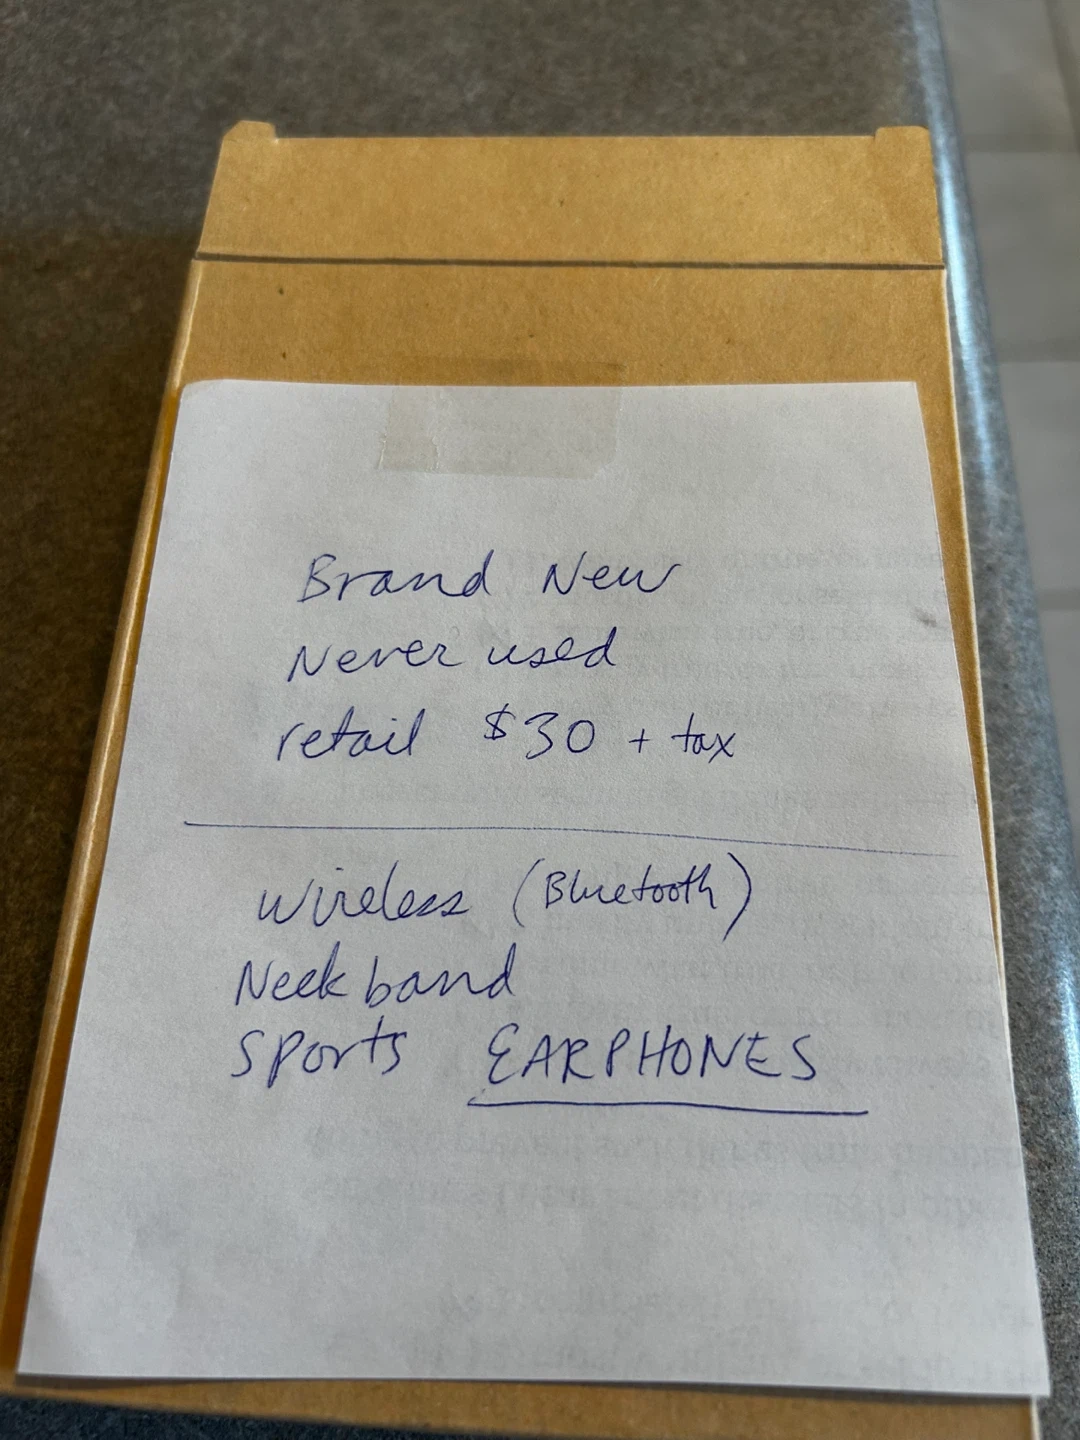 Brand New
Never used
retail $30 + tax
Wireless (Bluetooth)
Neck band
Sports EARPHONES